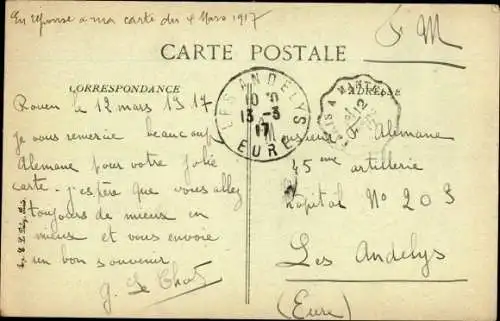 En réponse à mon carte du 4 Mars 1917
F M
CARTE POSTALE
CORRESPONDANCE
ADRESSE
LES ANDELYS
13 -3
17
EURE
12
Rouen le 12 mars 1917
je vous remercie beaucoup
Alemane pour votre jolie
carte. j'espère que vous allez
toujours de mieux en
mieux et vous envoie
un bon souvenir
Monsieur Alemane
45eme artillerie
hôpital No 203
Les Andelys
(Eure)